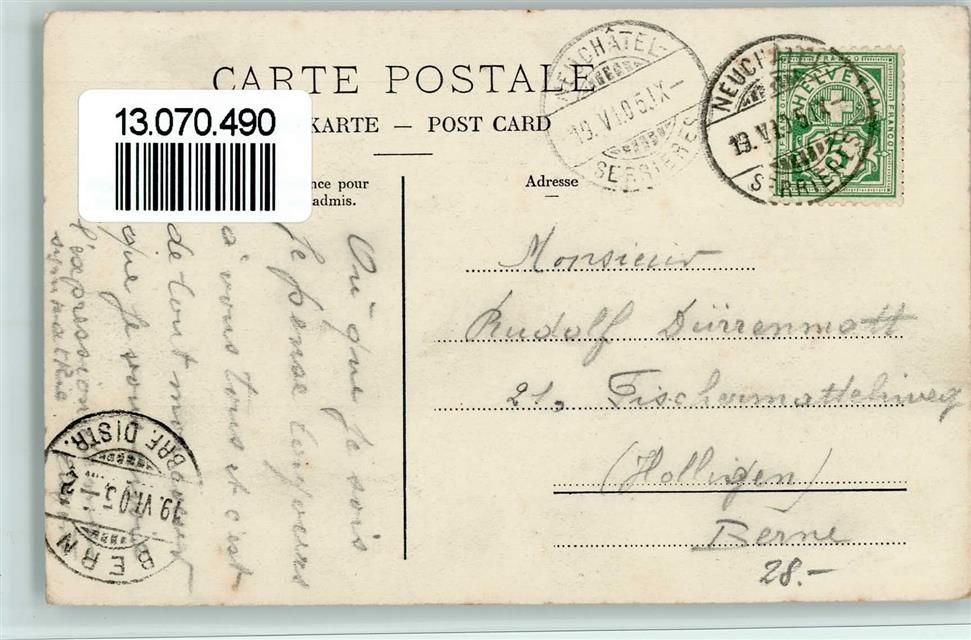 CARTE POSTALE
13.070.490
KARTE — POST CARD
nce pour
admis.
Adresse
NEUCHÂTEL-
19. VI. 05. IX—
SERRIÈRES
NEUCHÂTEL
19. VI. 05. IX—
SERRIÈRES
HELVETIA
FRANCO
5
Monsieur
Rudolf Dürrenmatt
21, Fischermätteliweg
(Holligen)
Berne
28.-
Où que je sois
Je pense toujours
à vous tous et c'est
de tout mon cœur
que je vous
l'expression
sympathie
BERN
19. VI. 05.
BRF. DISTR.